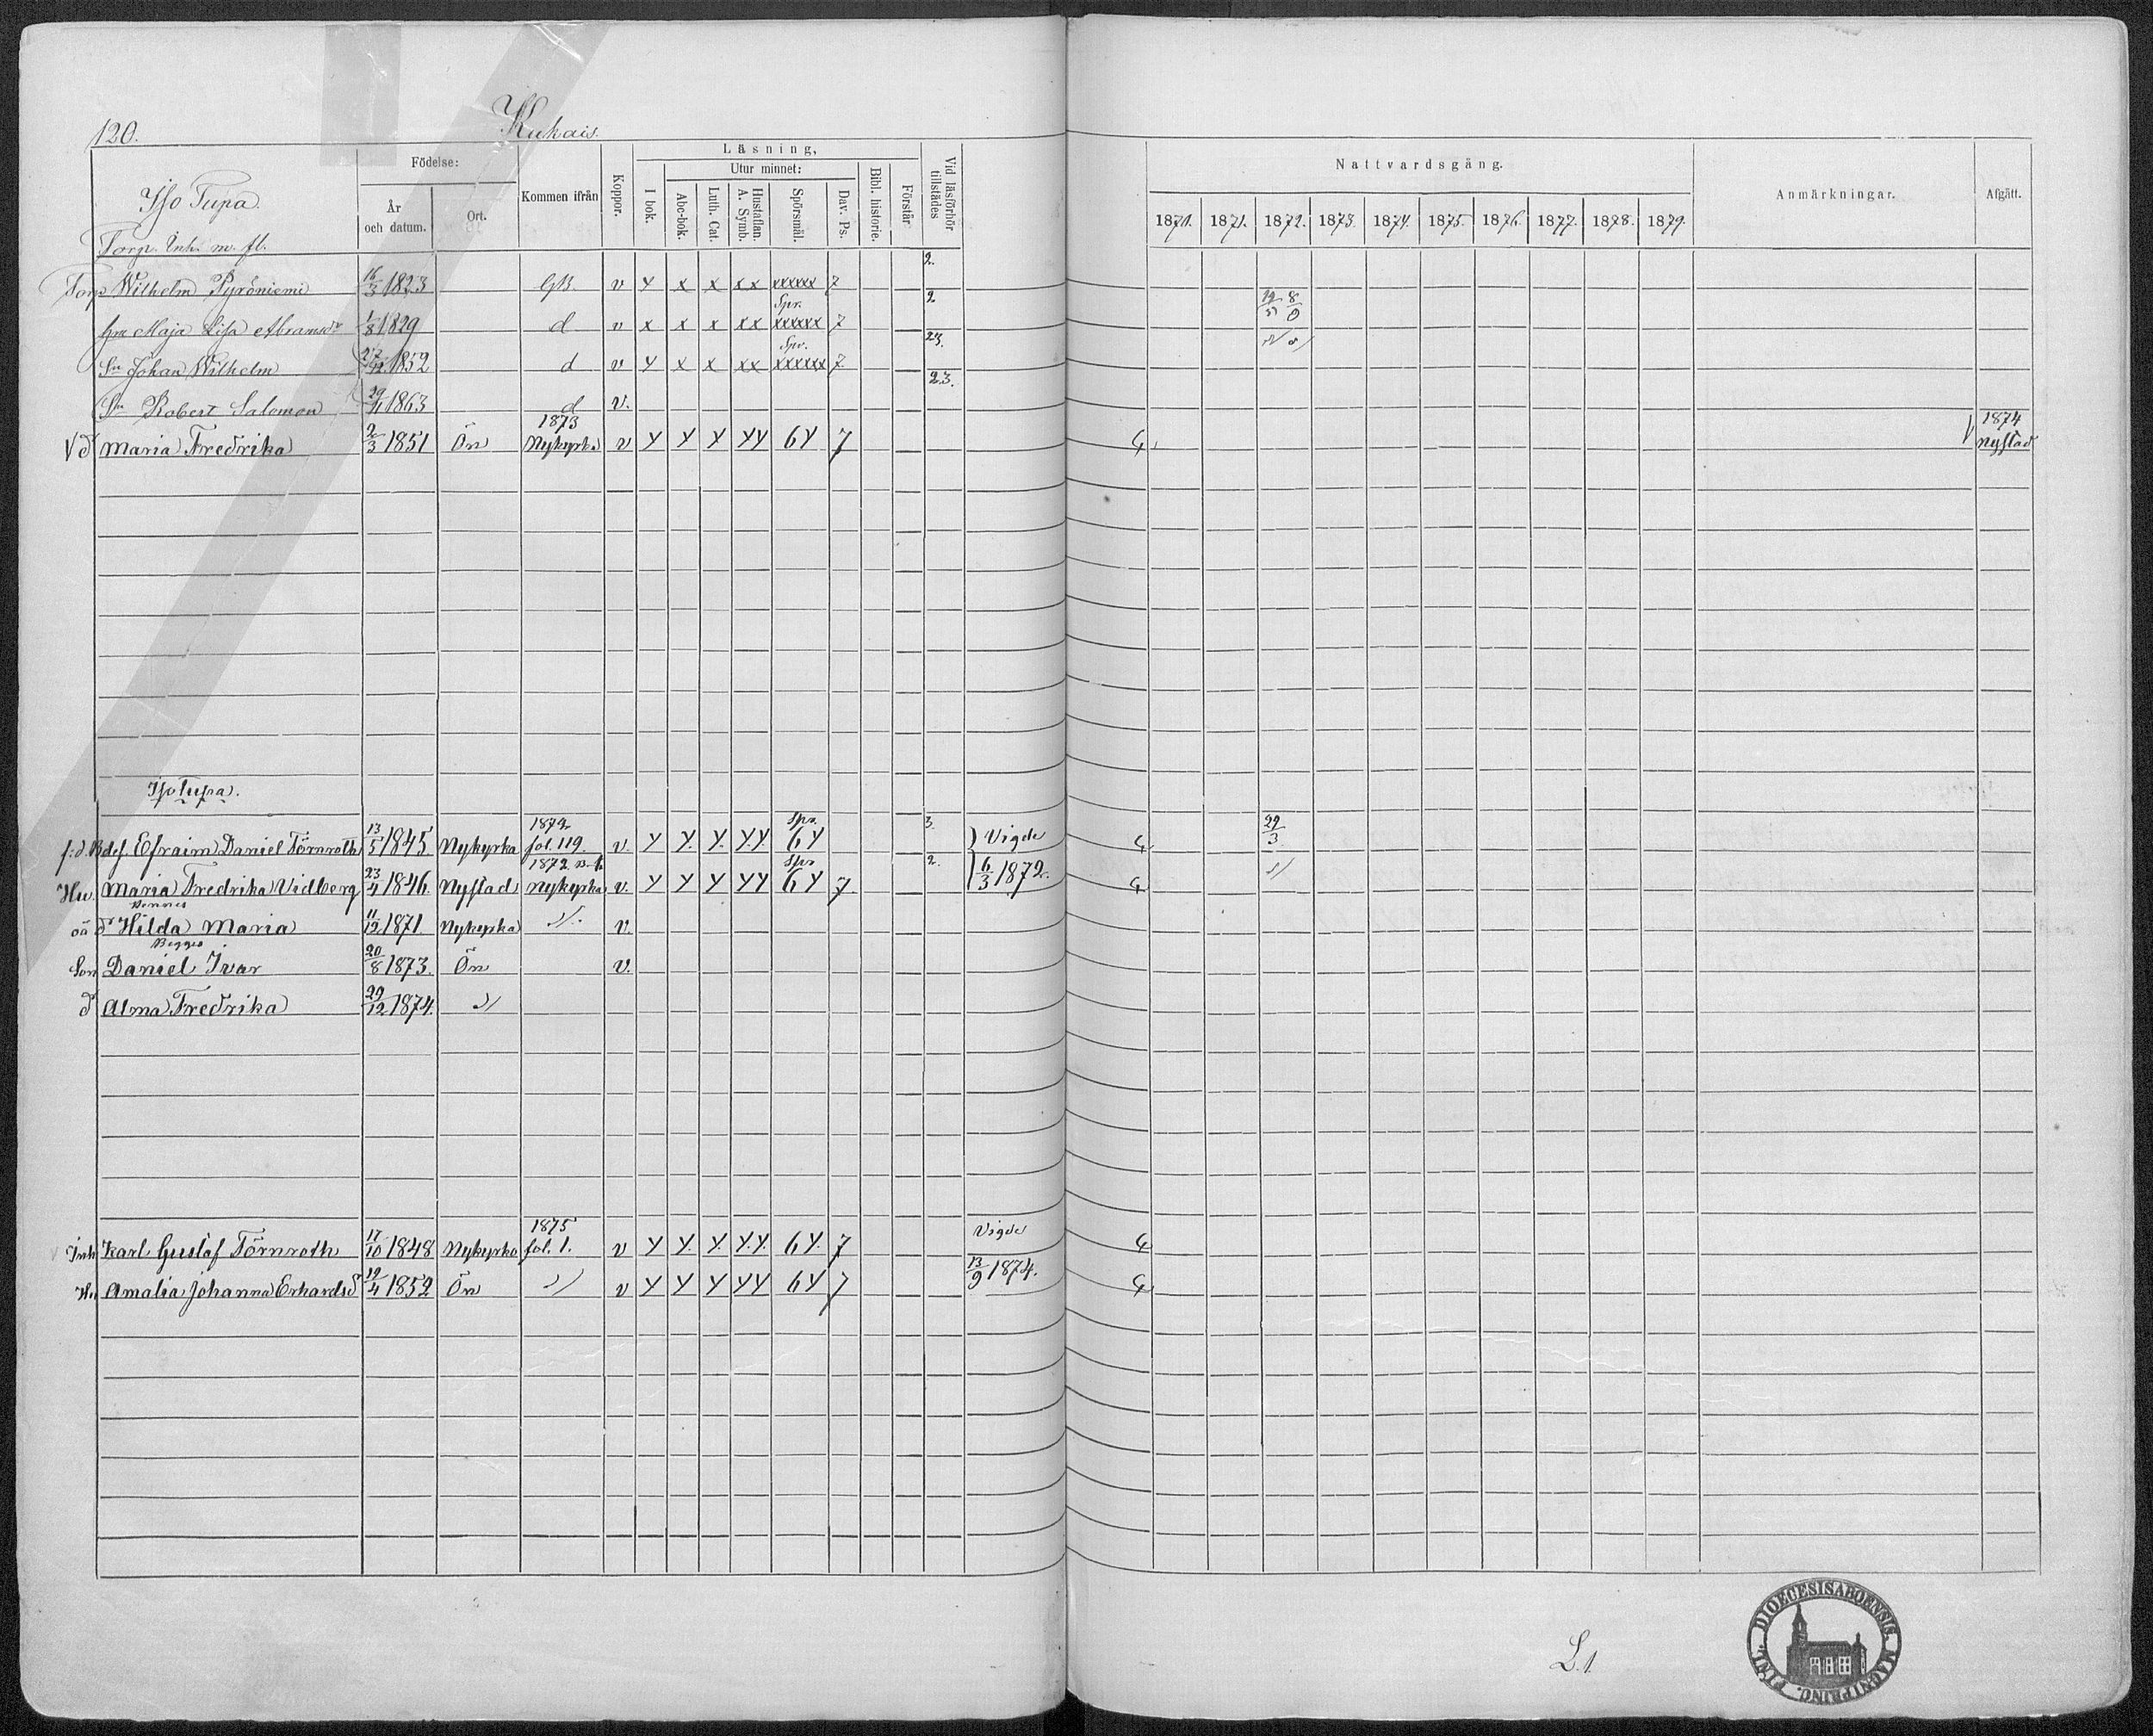 120.
Kukais.
Iso Tupa
Torp. Inh. m. fl.
Födelse:
År och datum.
Ort.
Kommen ifrån
Koppor.
Läsning,
I bok.
Utur minnet:
Abc-bok.
Luth. Cat.
Hustaflan. A. Symb.
Spörsmål.
Dav. Ps.
Bibl. historie.
Förstår
Vid läsförhör tillstädes
Nattvardsgång.
1870. 1871. 1872. 1873. 1874. 1875. 1876. 1877. 1878. 1879.
Anmärkningar.
Afgått.
Torp Wilhelm Pyröniemi 16/3 1823 GB. v y x x xx xxxxx 7 2.
hru Maja Lisa Abramsdr 1/8 1829 d v x x x xx Spr. xxxxx 7 2
Sn Johan Wilhelm 27/12 1852 d v y x x xx Spr. xxxxxx 7 23.
Sn Robert Salomon 29/11 1863 d v. 23.
V d Maria Fredrika 2/3 1851 Ön 1873 Nykyrka v y y y yy 6y 7 1874 Nystad
Iso Tupa.
f.d. Bdef Efraim Daniel Törnroth 13/5 1845 Nykyrka 1872 fol. 119. v. y y. y. y.y. Spr. 6y 3. Vigde 29/3
Hu. Maria Fredrika Vidberg 23/4 1846 Nystad 1872 Nykyrka v. y y y yy Spr 6y 7 2. 6/3 1872.
Dennes
oä d Hilda Maria 11/12 1871. Nykyrka v.
Begges
Son Daniel Ivar 20/8 1873. Ön v.
d Alma Fredrika 29/12 1874.
Inh Karl Gustaf Törnroth 17/10 1848 Nykyrka 1875 fol. 1. v y y. y. y.y. 6y. 7 Vigde
Hu Amalia Johanna Erhardsd 19/4 1852 Ön v y y y yy 6y 7 13/9 1874.
L.1.
DIOECESIS ABOENSIS. MAGNI PRINC. FINL.